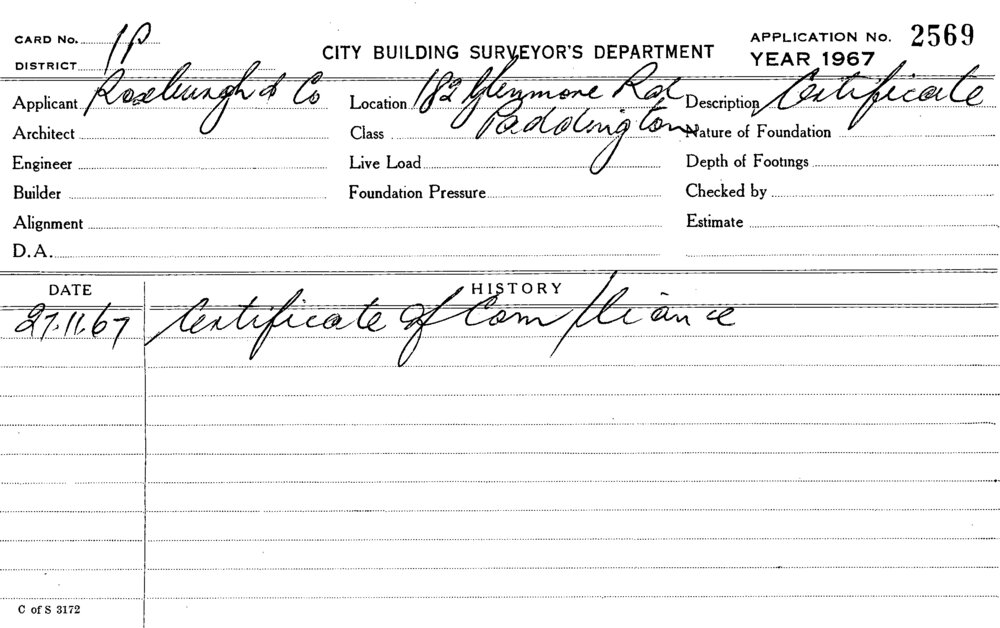 CARD No. 1P
CITY BUILDING SURVEYOR'S DEPARTMENT
APPLICATION No. 2569
DISTRICT
YEAR 1967
Applicant Roxburgh & Co Location 182 Glenmore Rd Description Certificate
Architect Class Paddington Nature of Foundation
Engineer Live Load Depth of Footings
Builder Foundation Pressure Checked by
Alignment Estimate
D.A.
DATE HISTORY
27.11.67 Certificate of Compliance
C of S 3172